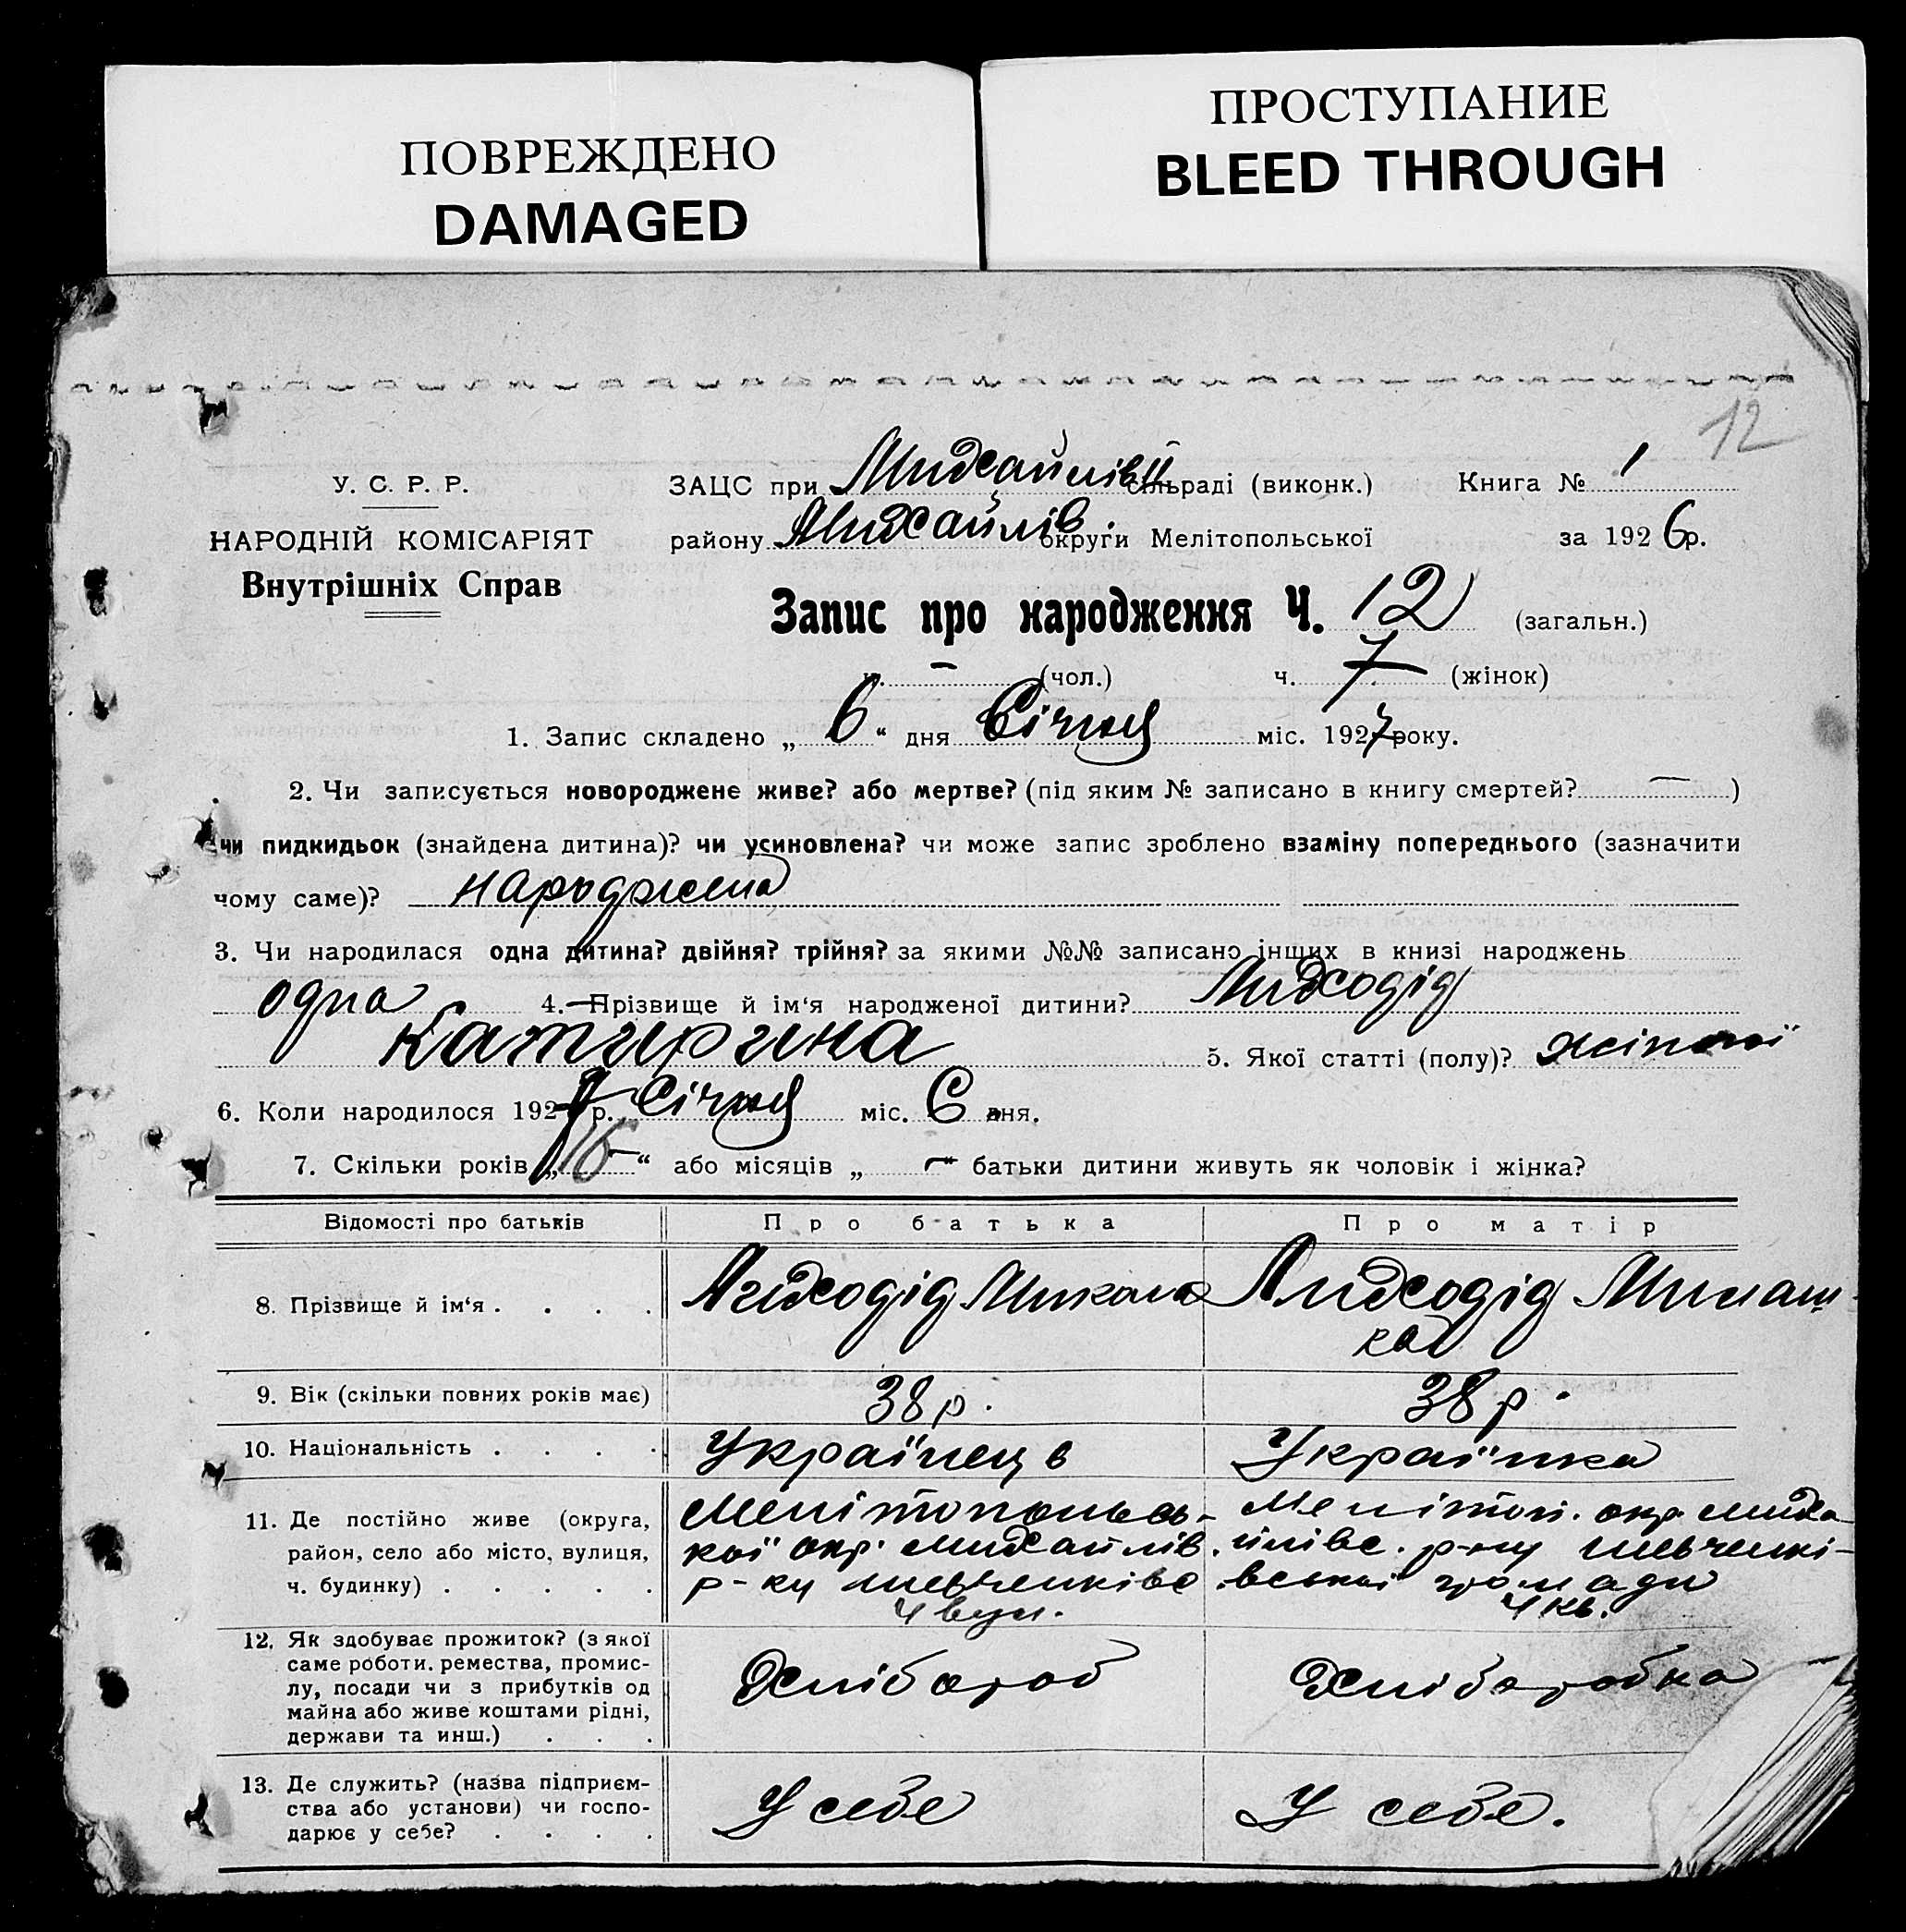 ПОВРЕЖДЕНО
DAMAGED
ПРОСТУПАНИЕ
BLEED THROUGH
12
У. С. Р. Р.
НАРОДНІЙ КОМІСАРІЯТ
Внутрішніх Справ
ЗАЦС при Михайлівській сільраді (виконк.) Книга № 1
району Михайлів. округи Мелітопольської за 1926 р.
Запис про народження Ч. 12 (загальн.)
ч. — (чол.) ч. 7 (жінок)
1. Запис складено „ 6 “ дня Січня міс. 1927 року.
2. Чи записується новороджене живе? або мертве? (під яким № записано в книгу смертей? — )
чи пидкидьок (знайдена дитина)? чи усиновлена? чи може запис зроблено взаміну попереднього (зазначити
чому саме)? народжена
3. Чи народилася одна дитина? двійня? трійня? за якими №№ записано інших в книзі народжень
одна 4. Прізвище й ім‘я народженої дитини? Лиходід
Катирина 5. Якої статті (полу)? жіночої
6. Коли народилося 1927 р. Січня міс. 6 дня.
7. Скільки років „ 16 “ або місяців „ — “ батьки дитини живуть як чоловік і жінка?
Відомості про батьків Про батька Про матір
8. Прізвище й ім‘я . . . . Лиходід Микола Лиходід Милаш-
ка
9. Вік (скільки повних років має) 38 р. 38 р.
10. Національність . . . . Українець Українка
11. Де постійно живе (округа, Мелітопольсь- Мелітоп. окр. Миха
район, село або місто, вулиця, кої окр. Михайлів. йлівс. р-ну Шевченкі-
ч. будинку) . . . . . р-ну Шевченківс .вської громади
4 вул. 4 кв.
12. Як здобуває прожиток? (з якої
саме роботи. ремества, промис-
лу, посади чи з прибутків од Хлібороб Хлібаробка
майна або живе коштами рідні,
держави та инш.) . . .
13. Де служить? (назва підприєм-
ства або установи) чи госпо- У себе У себе.
дарює у себе? . . . .